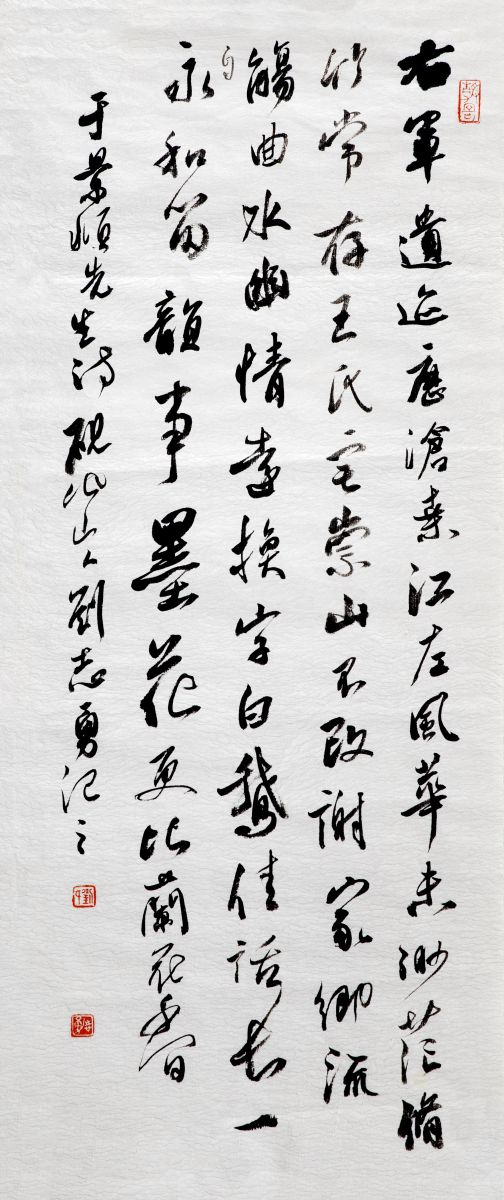 右軍遺迹歷滄桒江左風華未渺茫脩
竹常存王氏宅崇山不改謝家鄉流
觴曲水幽情遠換字白鵝佳話長一
自
永和留韻事墨花更比蘭花香
于景頫先生诗砚北山人劉志勇记之